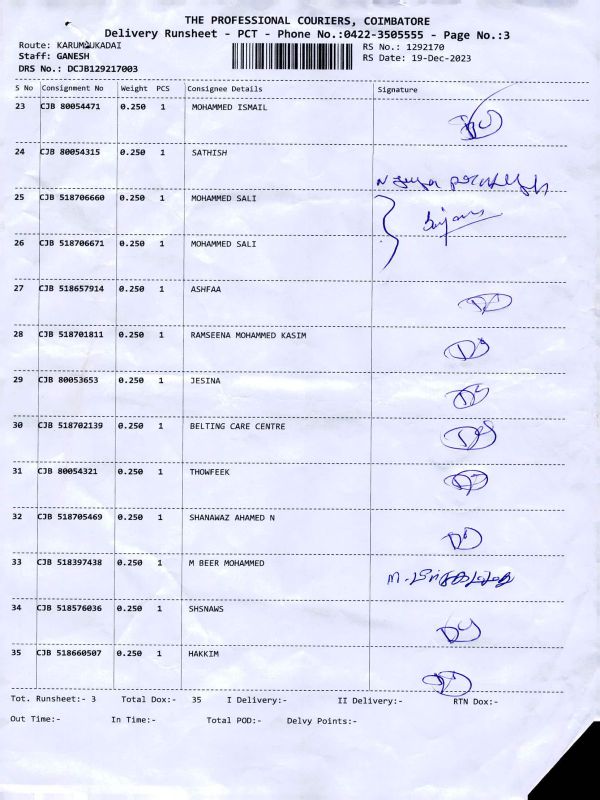 THE PROFESSIONAL COURIERS, COIMBATORE
Delivery Runsheet - PCT - Phone No.:0422-3505555 - Page No.:3
Route: KARUMBUKADAI RS No.: 1292170
Staff: GANESH RS Date: 19-Dec-2023
DRS No.: DCJB129217003
S No Consignment No Weight PCS Consignee Details Signature
23 CJB 80054471 0.250 1 MOHAMMED ISMAIL
24 CJB 80054315 0.250 1 SATHISH
25 CJB 518706660 0.250 1 MOHAMMED SALI
26 CJB 518706671 0.250 1 MOHAMMED SALI
27 CJB 518657914 0.250 1 ASHFAA
28 CJB 518701811 0.250 1 RAMSEENA MOHAMMED KASIM
29 CJB 80053653 0.250 1 JESINA
30 CJB 518702139 0.250 1 BELTING CARE CENTRE
31 CJB 80054321 0.250 1 THOWFEEK
32 CJB 518705469 0.250 1 SHANAWAZ AHAMED N
33 CJB 518397438 0.250 1 M BEER MOHAMMED
34 CJB 518576036 0.250 1 SHSNAWS
35 CJB 518660507 0.250 1 HAKKIM
Tot. Runsheet:- 3 Total Dox:- 35 I Delivery:- II Delivery:- RTN Dox:-
Out Time:- In Time:- Total POD:- Delvy Points:-